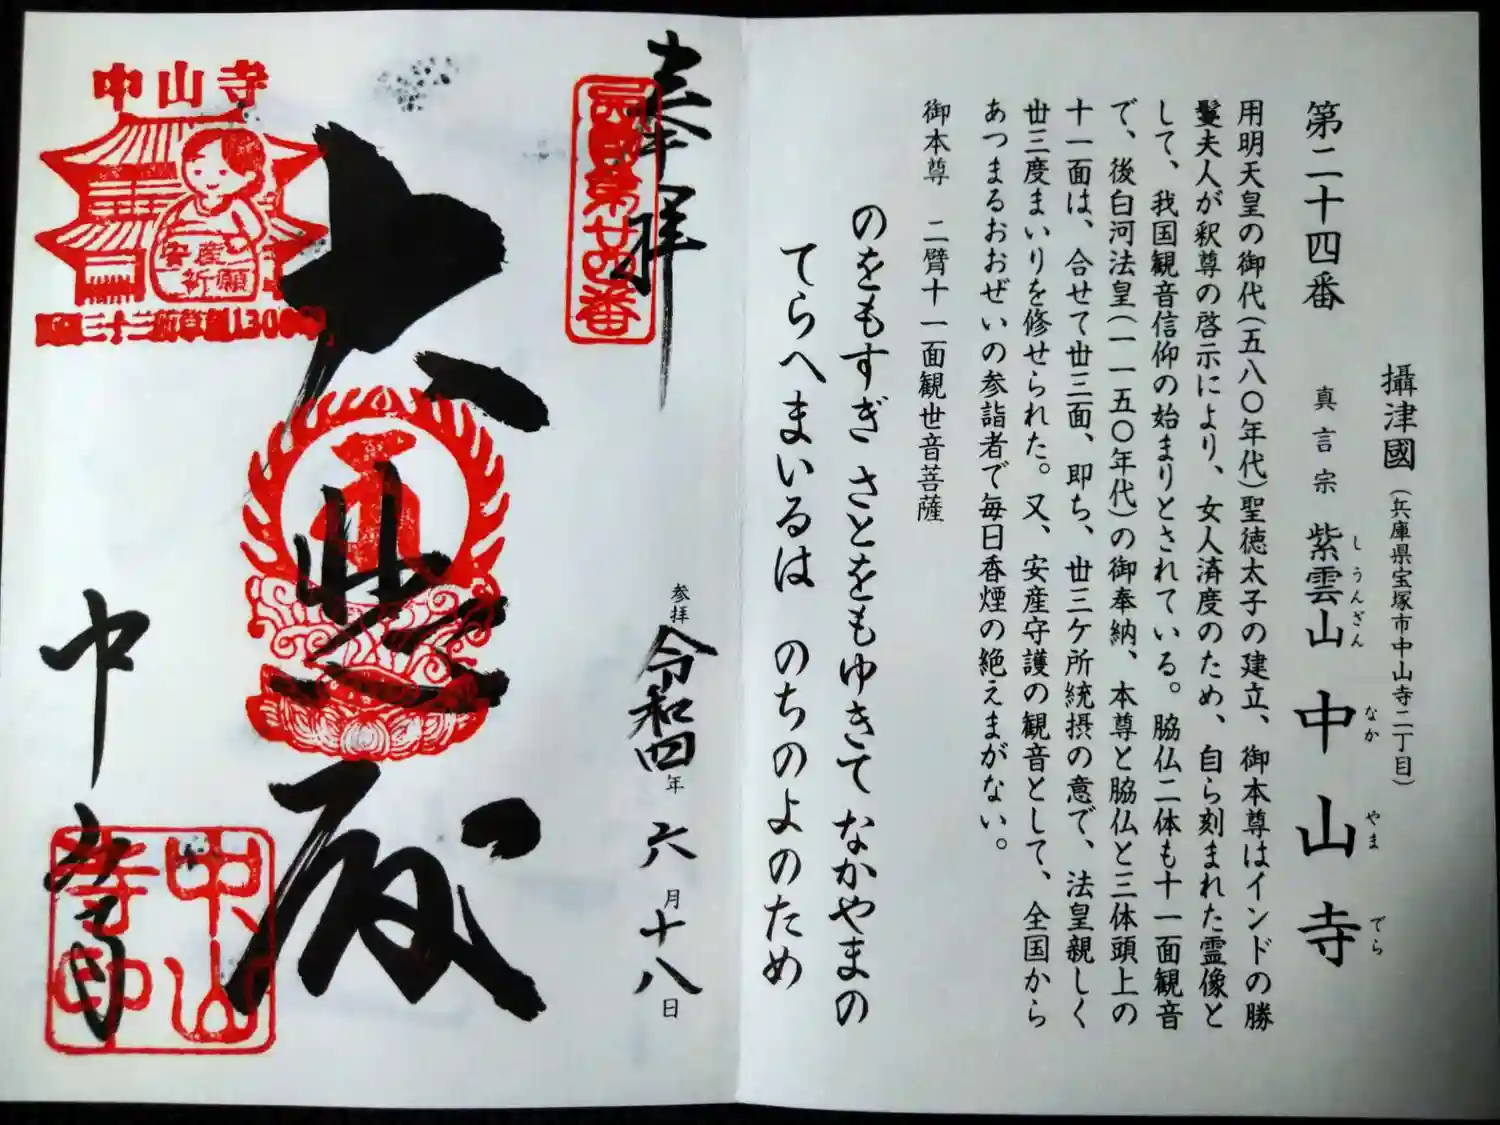 攝津國（兵庫県宝塚市中山寺二丁目）
第二十四番 真言宗 紫雲山 中山寺
しうんざん なか やま でら
用明天皇の御代（五八〇年代）聖徳太子の建立、御本尊はインドの勝
鬘夫人が釈尊の啓示により、女人済度のため、自ら刻まれた霊像と
して、我国観音信仰の始まりとされている。脇仏二体も十一面観音
で、後白河法皇（一一五〇年代）の御奉納、本尊と脇仏と三体頭上の
十一面は、合せて丗三面、即ち、丗三ケ所統摂の意で、法皇親しく
丗三度まいりを修せられた。又、安産守護の観音として、全国から
あつまるおおぜいの参詣者で毎日香煙の絶えまがない。
御本尊 二臂十一面観世音菩薩
のをもすぎ さとをもゆきて なかやまの
てらへまいるは のちのよのため
奉拝
西國第廿四番
参拝 令和四年 六月十八日
大悲殿
中山寺
中山寺
安産
祈願
中山寺印